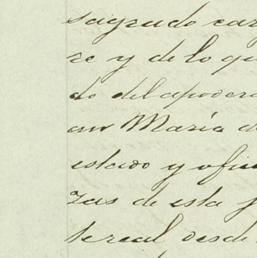 sagrado car
re y de lo qu
do del apodera
an María d
estado y ofic
zas de esta p
te real desde